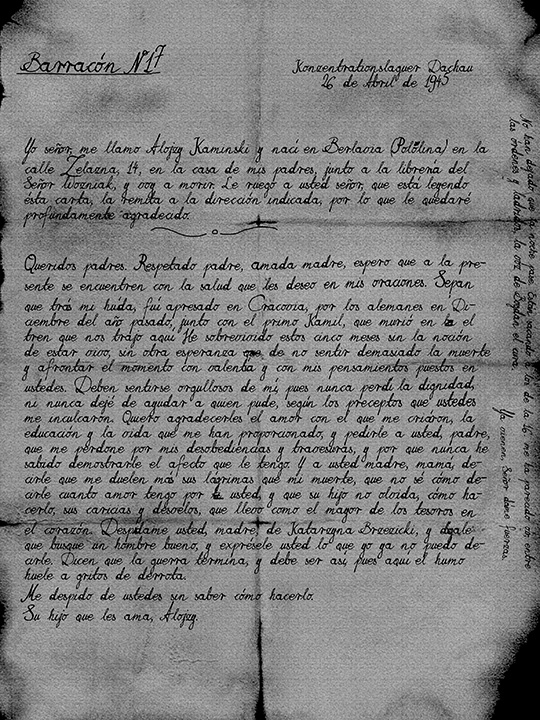 Barracón Nº17
Konzentrationslaguer Dachau
26 de Abril de 1945
Yo señor, me llamo Alojzy Kaminski y naci en Berlaoza (Pololina) en la
calle Zelazna, 14, en la casa de mis padres, junto a la libreria del
Señor Wozniak, y voy a morir. Le ruego a usted señor, que está leyendo
ésta carta, la remita a la dirección indicada, por lo que le quedaré
profundamente agradecido.
Queridos padres. Respetado padre, amada madre, espero que a la pre-
sente se encuentren con la salud que les deseo en mis oraciones. Sepan
que trás mi huida, fui apresado en Cracovia, por los alemanes en Di-
ciembre del año pasado, junto con el primo Kamil, que murió en el
tren que nos trajo aqui. He sobrevivido estos cinco meses sin la noción
de estar vivo, sin otra esperanza que de no sentir demasiado la muerte
y afrontar el momento con valentia y con mis pensamientos puestos en
ustedes. Deben sentirse orgullosos de mi pues nunca perdi la dignidad,
ni nunca dejé de ayudar a quien pude, según los preceptos que ustedes
me inculcarón. Quiero agradecerles el amor con el que me criáron, la
educación y la vida que me han proporcionado, y pedirle a usted, padre,
que me perdone por mis desobediencias y travesuras, y por que nunca he
sabido demostrarle el afecto que le tengo. Y a usted madre, mamá, de-
cirle que me duelen más sus lágrimas que mi muerte, que no sé cómo de-
cirle cuanto amor tengo por usted, y que su hijo no olvida, cómo ha-
cerlo, sus caricias y desvelos, que llevo como el mayor de los tesoros en
el corazón. Despidame usted, madre, de Katarzyna Brzezicki, y digale
que busque un hombre bueno, y exprésele usted lo que yo ya no puedo de-
cirle. Dicen que la guerra termina, y debe ser asi, pues aqui el humo
huele a gritos de derrota.
Me despido de ustedes sin saber cómo hacerlo.
Su hijo que les ama, Alojzy.
No han dejado que la noche pase. Están sacando a los de la 16 me ha parecido oir entre
las ordenes y ladridos, la voz de Bogdan el cura.
Ya vienen. Señor dame fuerzas.